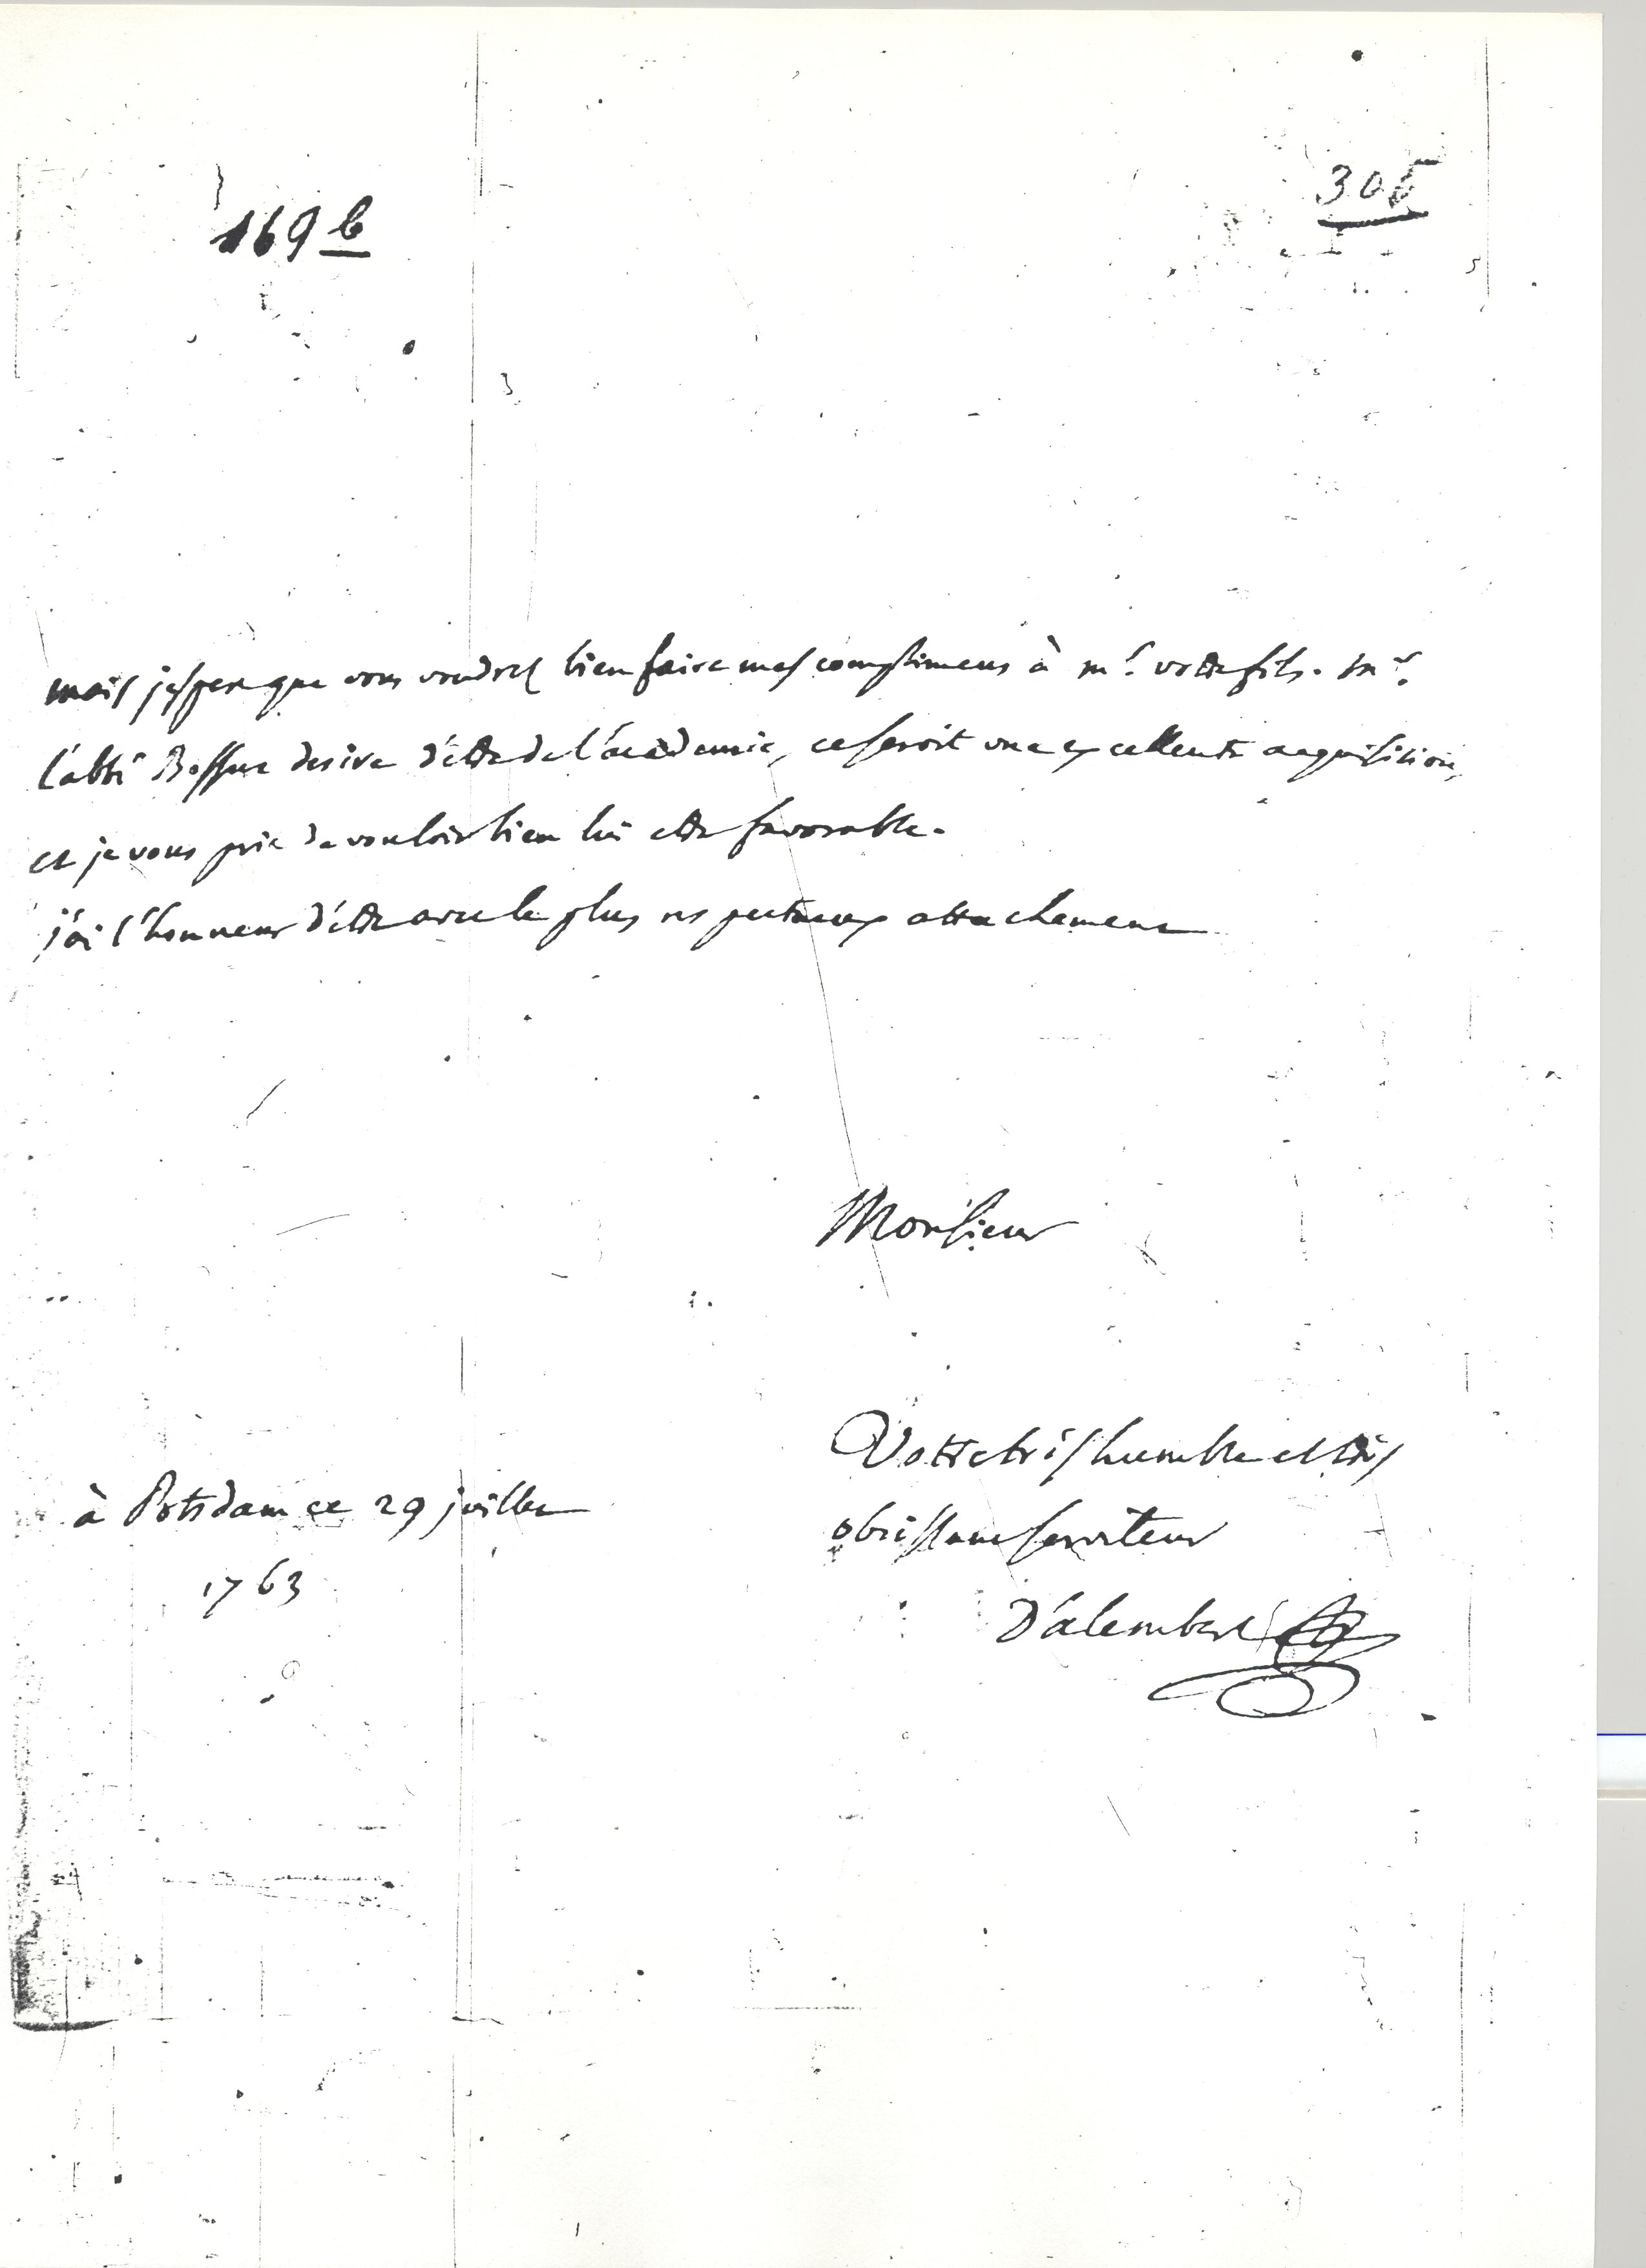 169 b
305
mais j'espere que vous voudrez bien faire mes complimens à mr. votre fils. Mr.
l'abbé Bossut desire d'être de l'académie, ce seroit une excellente acquisition,
et je vous prie de vouloir bien lui etre favorable.
j'ai l'honneur d'être avec le plus respectueux attachement
Monsieur
Votre très humble et très
obeissant serviteur
D'alembert
à Potsdam ce 29 juillet
1763